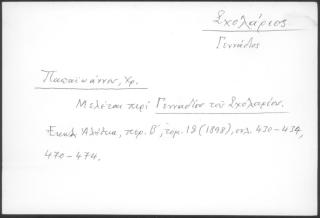 Σχολάριος
Γεννάδιος
Παπαϊωάννου, Χρ.
Μελέται περὶ Γενναδίου τοῦ Σχολαρίου.
Ἐκκλ. Ἀλήθεια, περ. Β΄, τομ. 18 (1898), σελ. 430-434,
470-474.